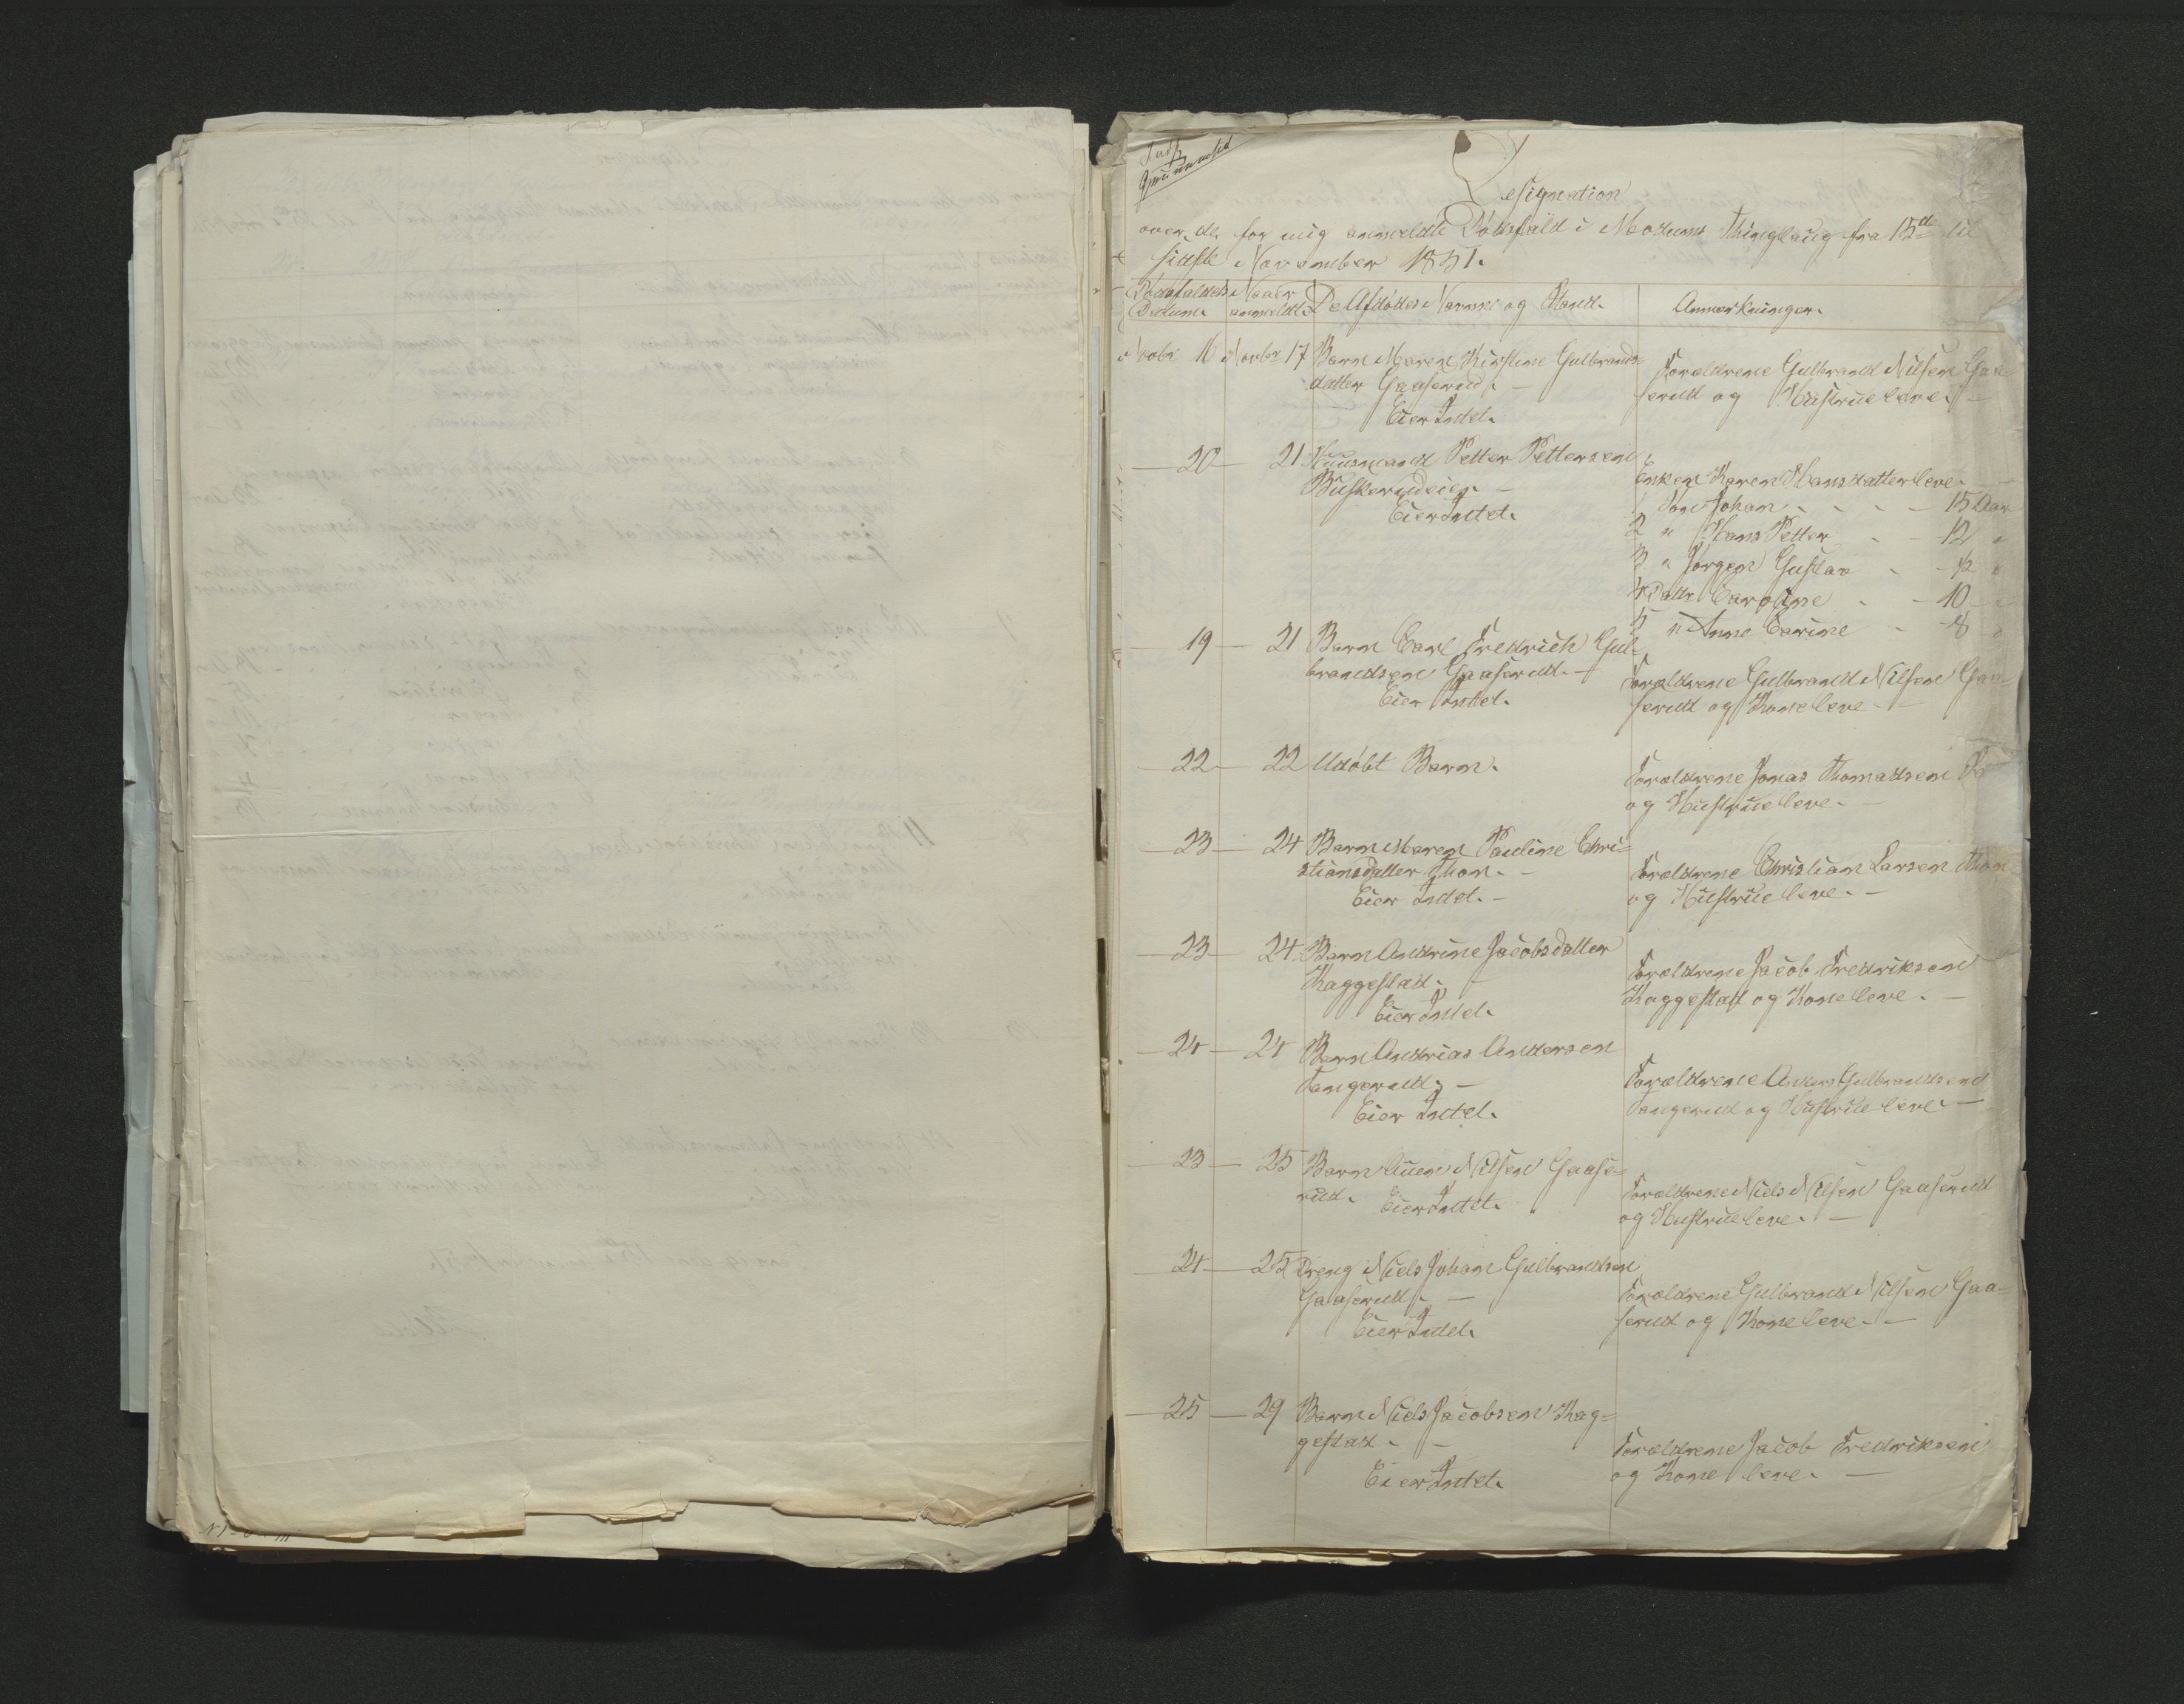 Designation
over de for mig anmeldte Dödsfald i Modums Thinglaug fra 15de til
sidste November 1851.
Dödsfaldets Datum. Naar anmeldt. De Afdödes Navne og Stand. Anmærkninger.
Novbr 16 Novbr 17 Barn Maren Kirstine Gulbrands-
datter Gaaserud. -
Eier Intet.
Forældrene Gulbrand Nilsen Gaa-
serud og Hustrue leve. -
20 - 21 Huusmand Petter Pettersen
Buskerudeier. -
Eier Intet.
Enken Karen Hansdatter leve. -
1 Søn Johan - - - - 15 Aar
2 " Hans Petter - - 12 "
3 " Jørgen Gustav - - 12 "
4 Datr Caroline - - 10 "
5 " Anne Carine - 8 "
19 - 21 Barn Carl Fredrich Gul-
brandsen Gaaserud. -
Eier Intet.
Forældrene Gulbrand Nilsen Gaa-
serud og Kone leve -
22 - 22 Udöbt Barn.
Forældrene Jonas Thomassen
og Hustrue leve. -
23 - 24 Barn Maren Pauline Chri-
stiansdatter Thon. -
Eier Intet. -
Forældrene Christian Larsen Thon
og Hustrue leve. -
23 - 24 Barn Andrine Jacobsdatter
Kaggestad. -
Eier Intet.
Forældrene Jacob Fredriksen
Kaggestad og Kone leve. -
24 - 24 Barn Andrias Andersen
Tangerud. -
Eier Intet.
Forældrene Anders Gulbrandsen
Tangerud og Hustrue leve -
23 - 25 Barn Nilsen Gaase-
rud. Eier Intet.
Forældrene Niels Nilsen Gaaserud
og Hustrue leve. -
24 - 25 Dreng Niels Johan Gulbrandsen
Gaaserud. -
Eier Intet.
Forældrene Gulbrand Nilsen Gaa-
serud og Kone leve. -
25 - 29 Barn Niels Jacobsen Kag-
gestad. -
Eier Intet.
Forældrene Jacob Fredriksen
og Kone leve. -